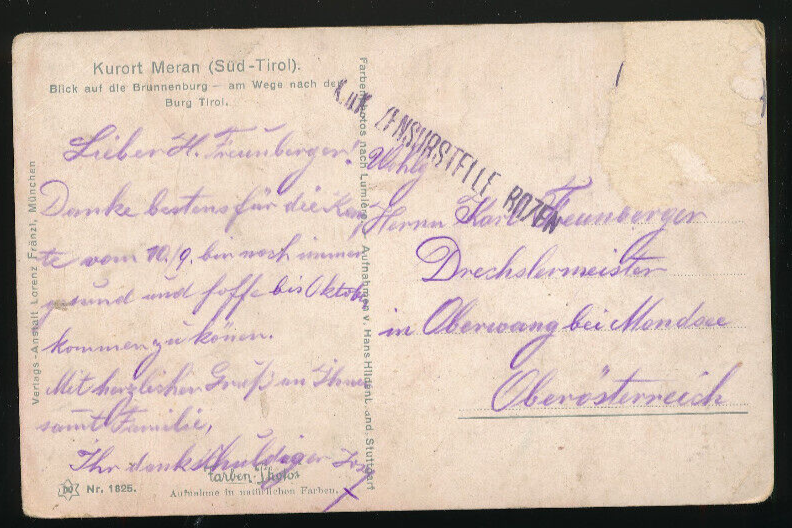 Kurort Meran (Süd-Tirol).
Blick auf die Brunnenburg – am Wege nach der
Burg Tirol.
Lieber H. Freunberger!
Danke bestens für die Kar
te vom 10./9. bin noch immer
gsund und hoffe bis Oktober
kommen zu könen.
Mit herzlichen Gruß an Ihnen
samt Familie,
Ihr dankschuldiger
Farben-Photos
Nr. 1825.
Aufnahme in natürlichen Farben.
Verlags-Anstalt Lorenz Fränzl, München
Farbenphotos nach Lumière Aufnahmen v. Hans Hildenbrand. Stuttgart
K.u.K. ZENSURSTELLE BOZEN
Wohlg
Herrn Karl Freunberger
Drechslermeister
in Oberwang bei Mondsee
Oberösterreich